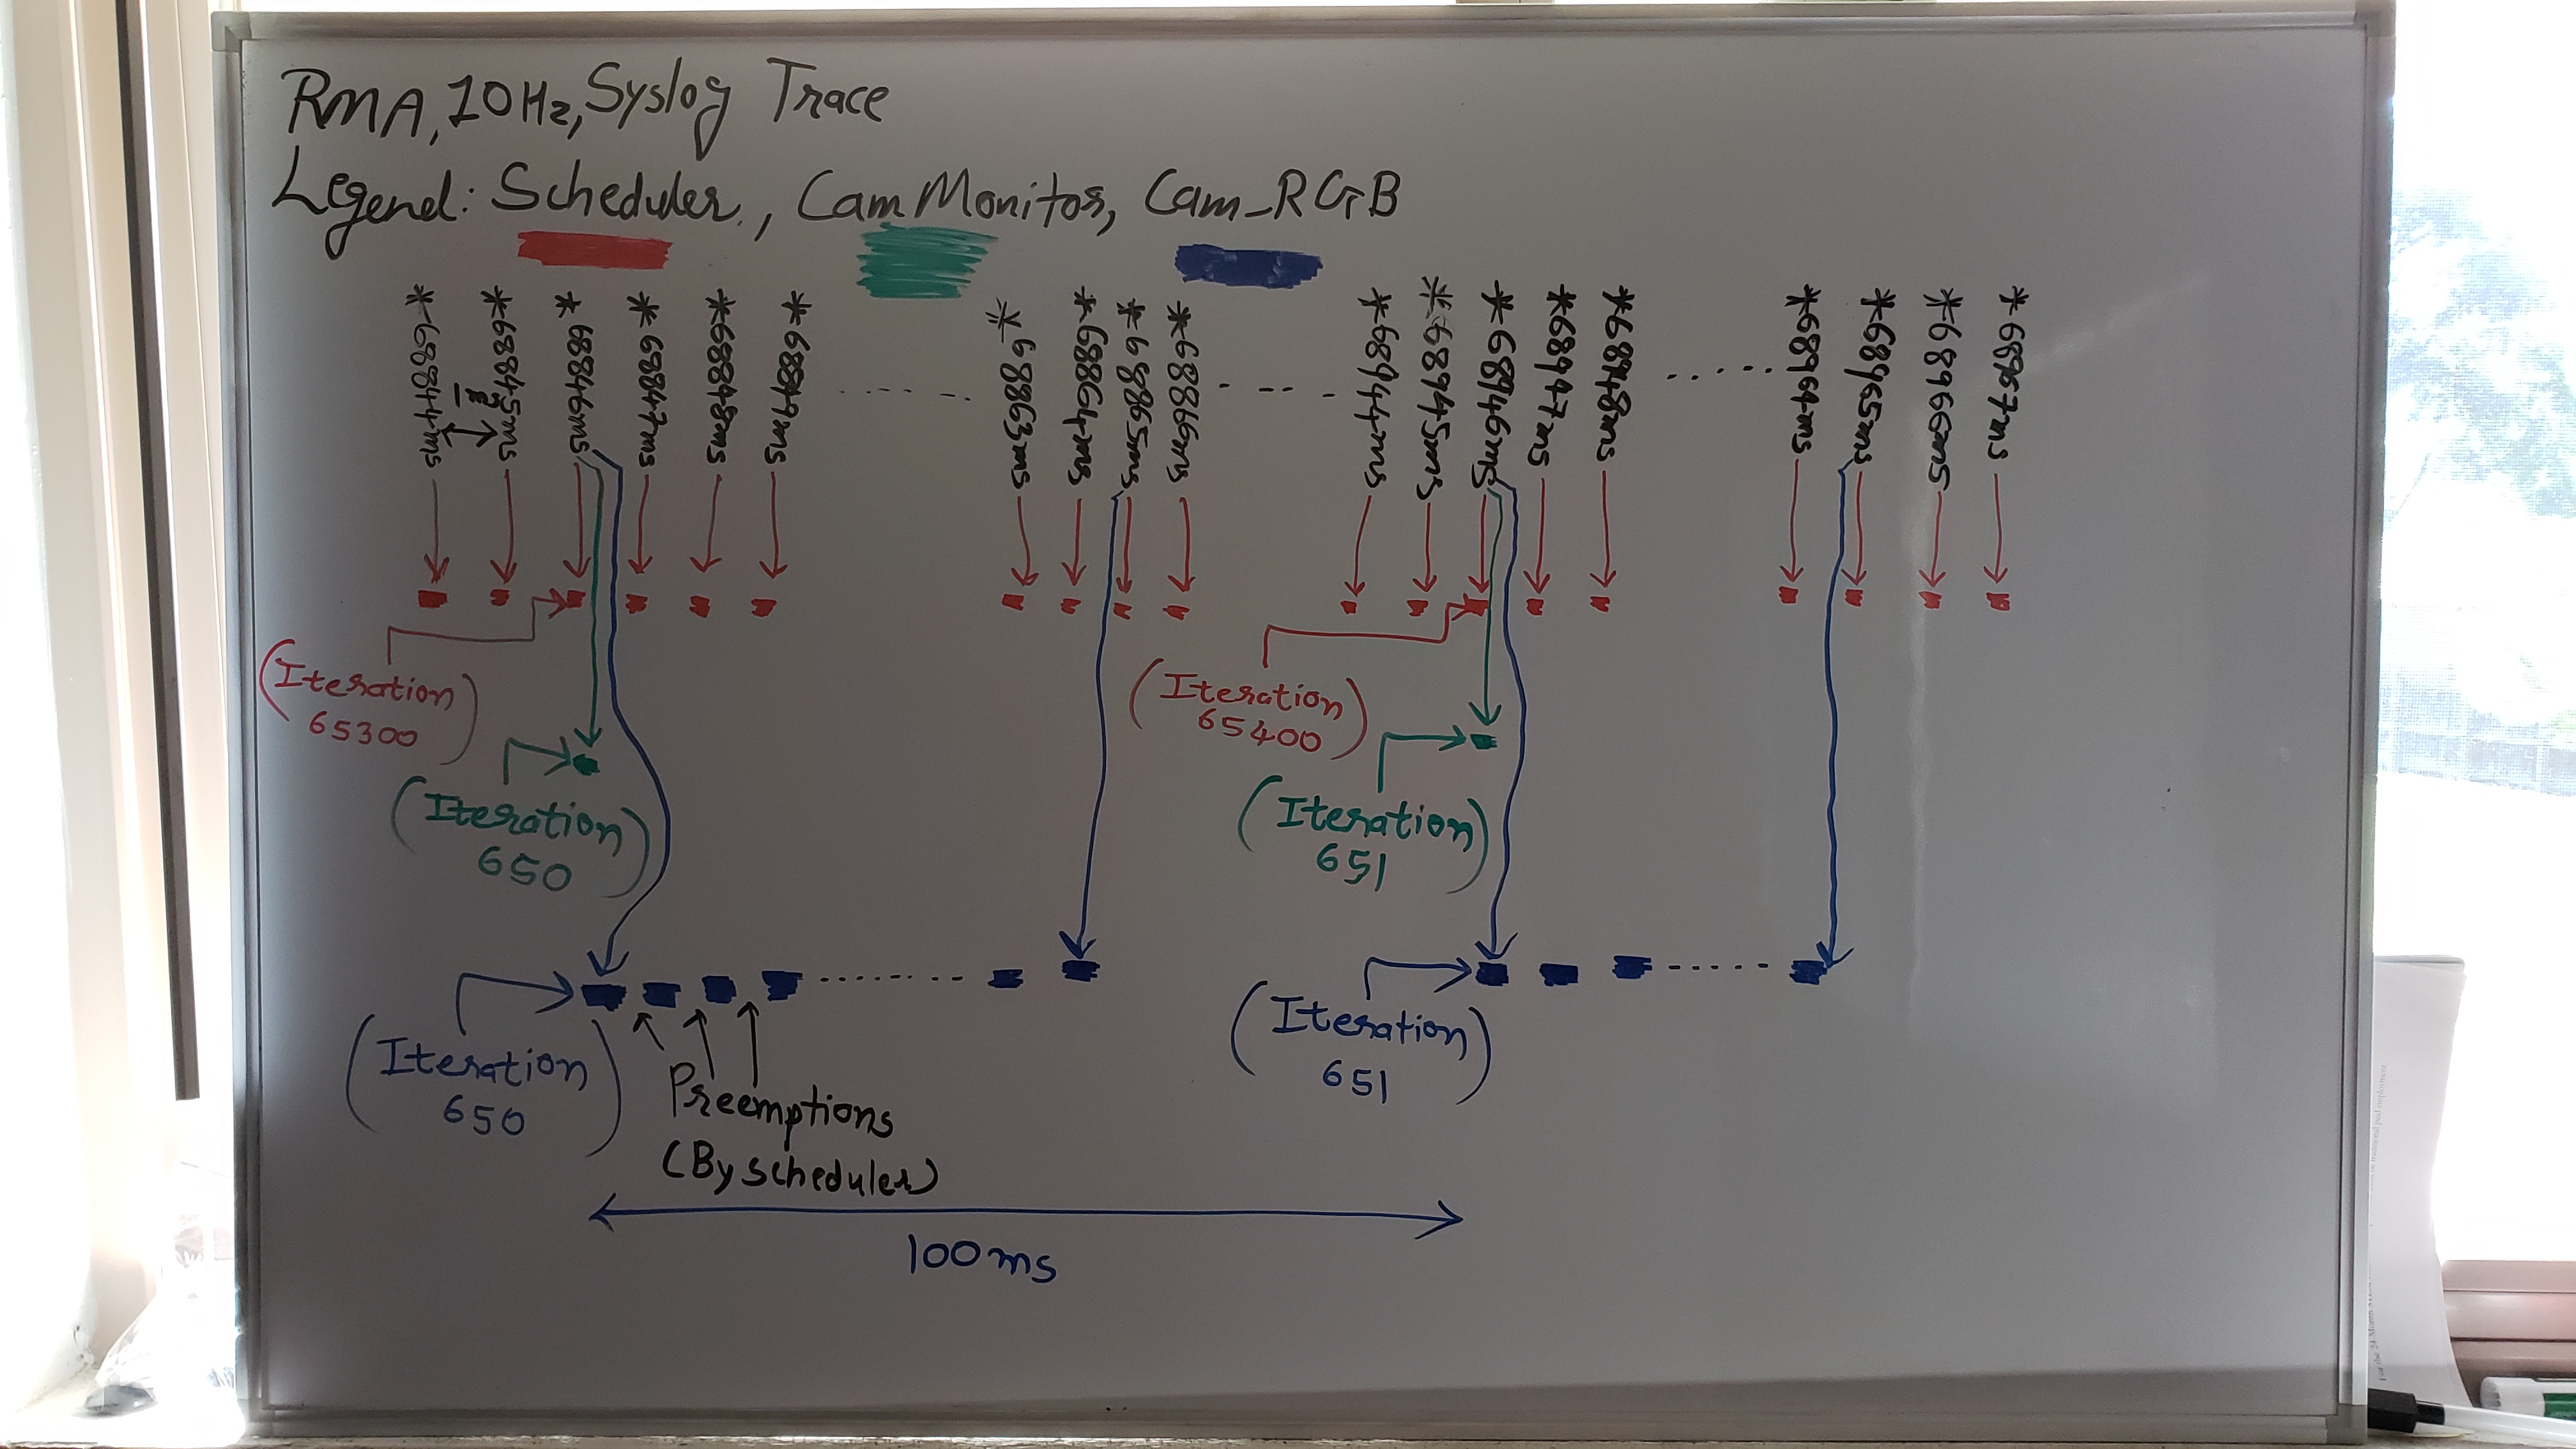 RMA, 10Hz, Syslog Trace
Legend: Scheduler, Cam Monitor, Cam_RGB
*68844ms
1ms
*68845ms
*68846ms
*68847ms
*68848ms
*68849ms
*68863ms
*68864ms
*68865ms
*68866ms
*68944ms
*68945ms
*68946ms
*68947ms
*68948ms
*68964ms
*68965ms
*68966ms
*68967ms
(Iteration
65300)
(Iteration
65400)
(Iteration
650)
(Iteration
651)
(Iteration
650)
(Iteration
651)
Preemptions
(By scheduler)
100ms